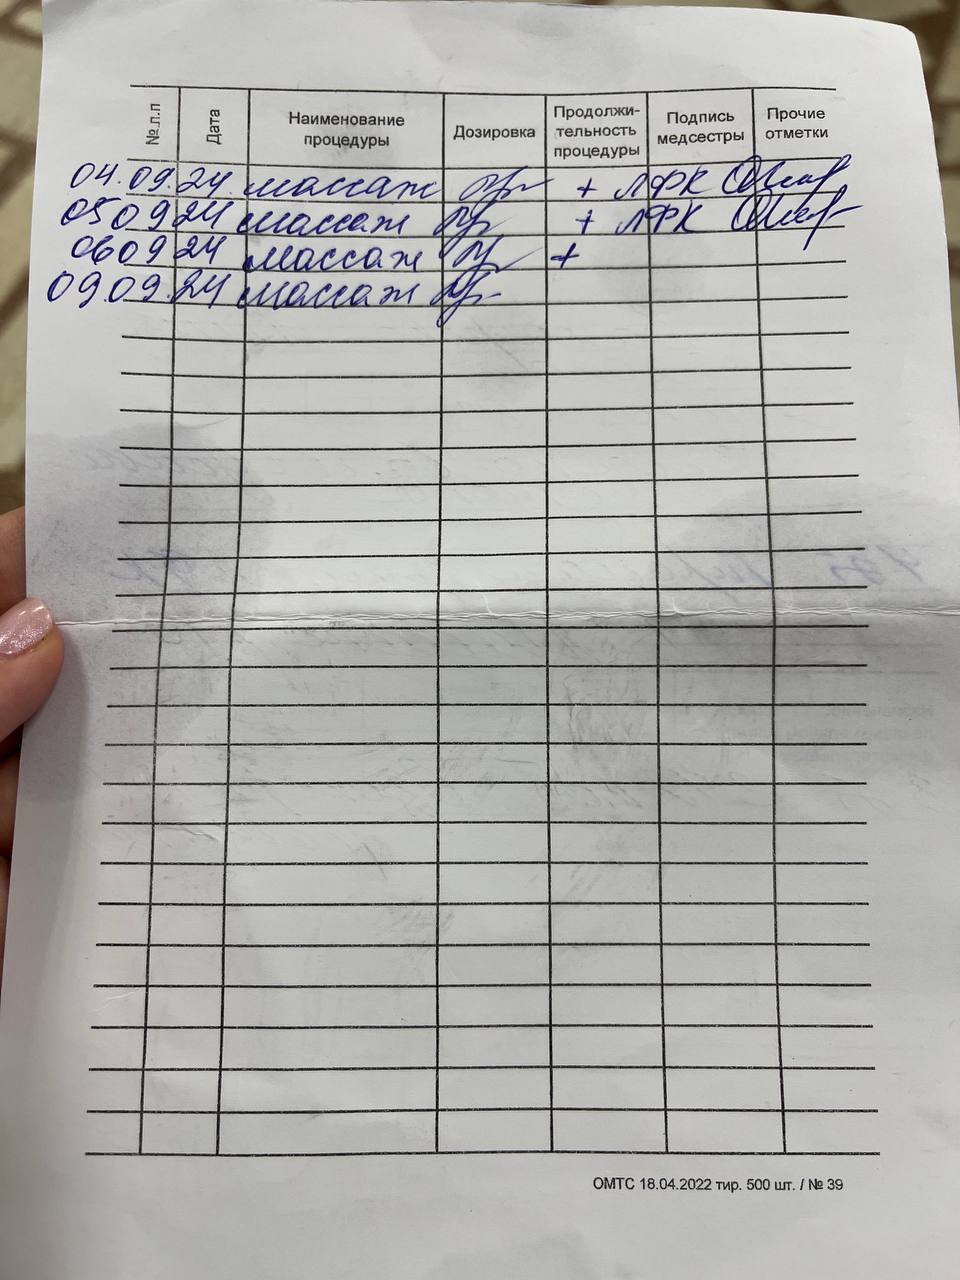 №.п.п Дата Наименование процедуры Дозировка Продолжи-тельность процедуры Подпись медсестры Прочие отметки
04.09.24 массаж + ЛФК
05 09 24 массаж + ЛФК
06 09 24 массаж +
09.09.24 массаж
ОМТС 18.04.2022 тир. 500 шт. / № 39